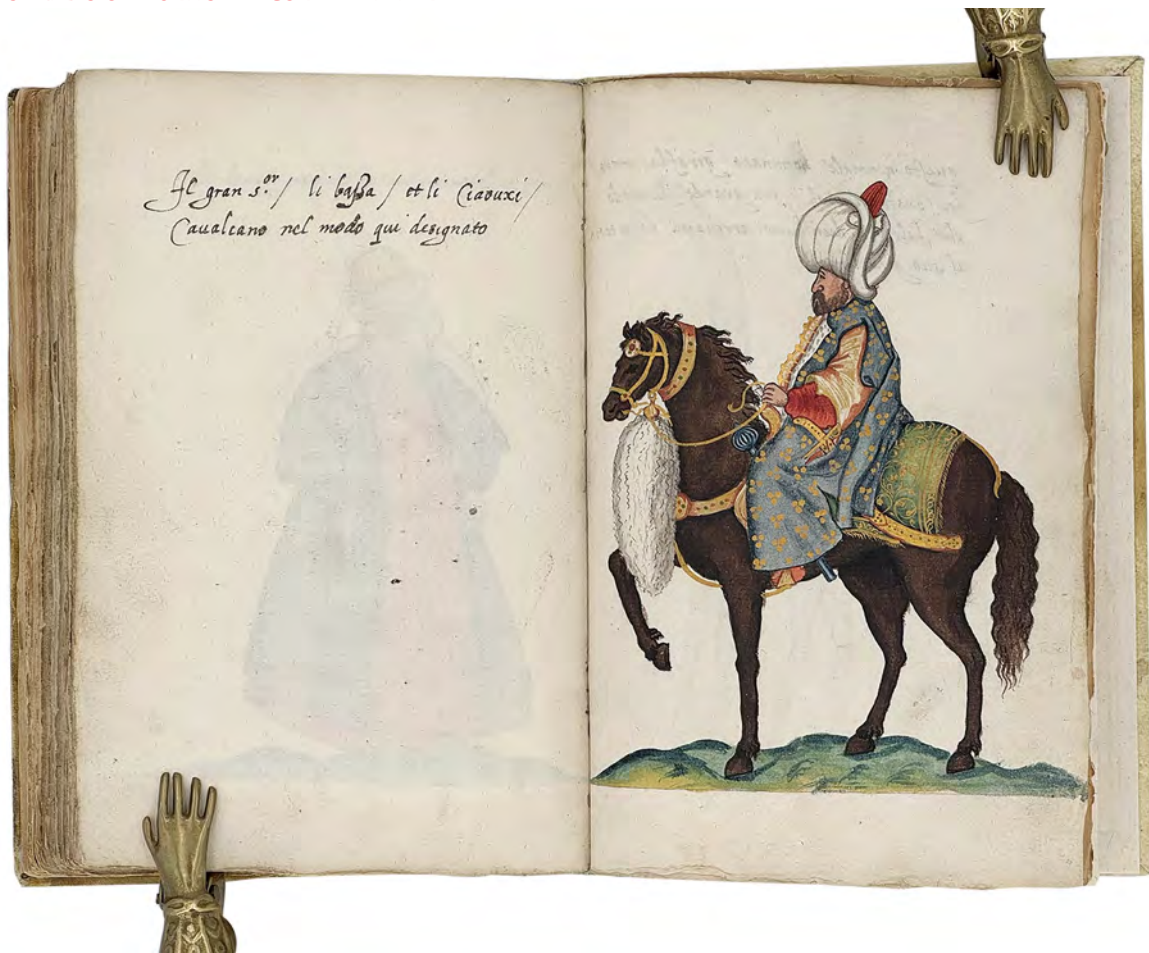 Il gran s.or / li baßa / et li Ciaouxi /
Caualcano nel modo qui designato